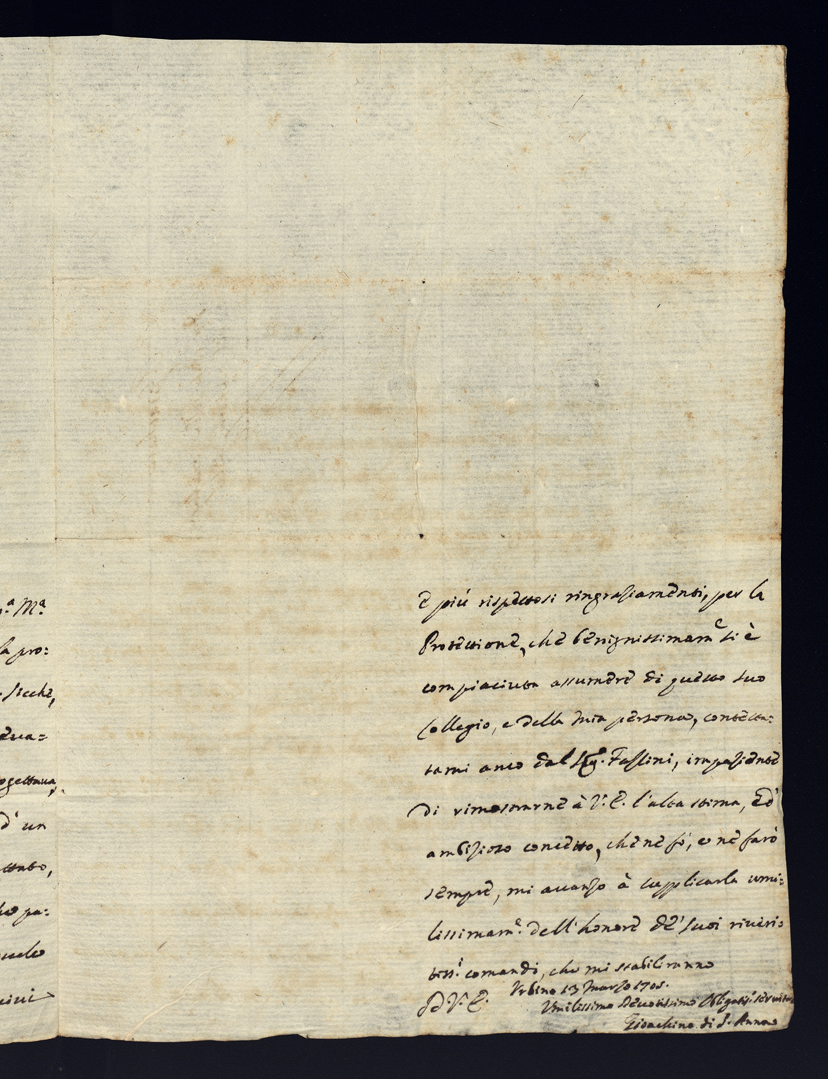 Mª
la pro:
sicche,
eua=
ogettaua,
d' un
ettato,
pa:
e più rispettosi ringratiamenti, per la
Protettione, che benignissimamᵉ si è
compiaciuta assumere di questo suo
Collegio, e della mia persona, contesta:
tami anco dal Sigʳ. Fassini, impatiente
di rimostrarne à V. E. l'alta stima, ed'
ambizioso concetto, che ne fò, e ne farò
sempre, mi auanzo à supplicarla umi:
lissimamᵉ. dell' honore de' suoi riueri:
tissⁱ. comandi, che mi stabiliranno
Di V. E.
Urbino 13 Marzo 1705.
Umilissimo Deuotissimo Obligatᵒ seruitor
Gioachino di S. Anna